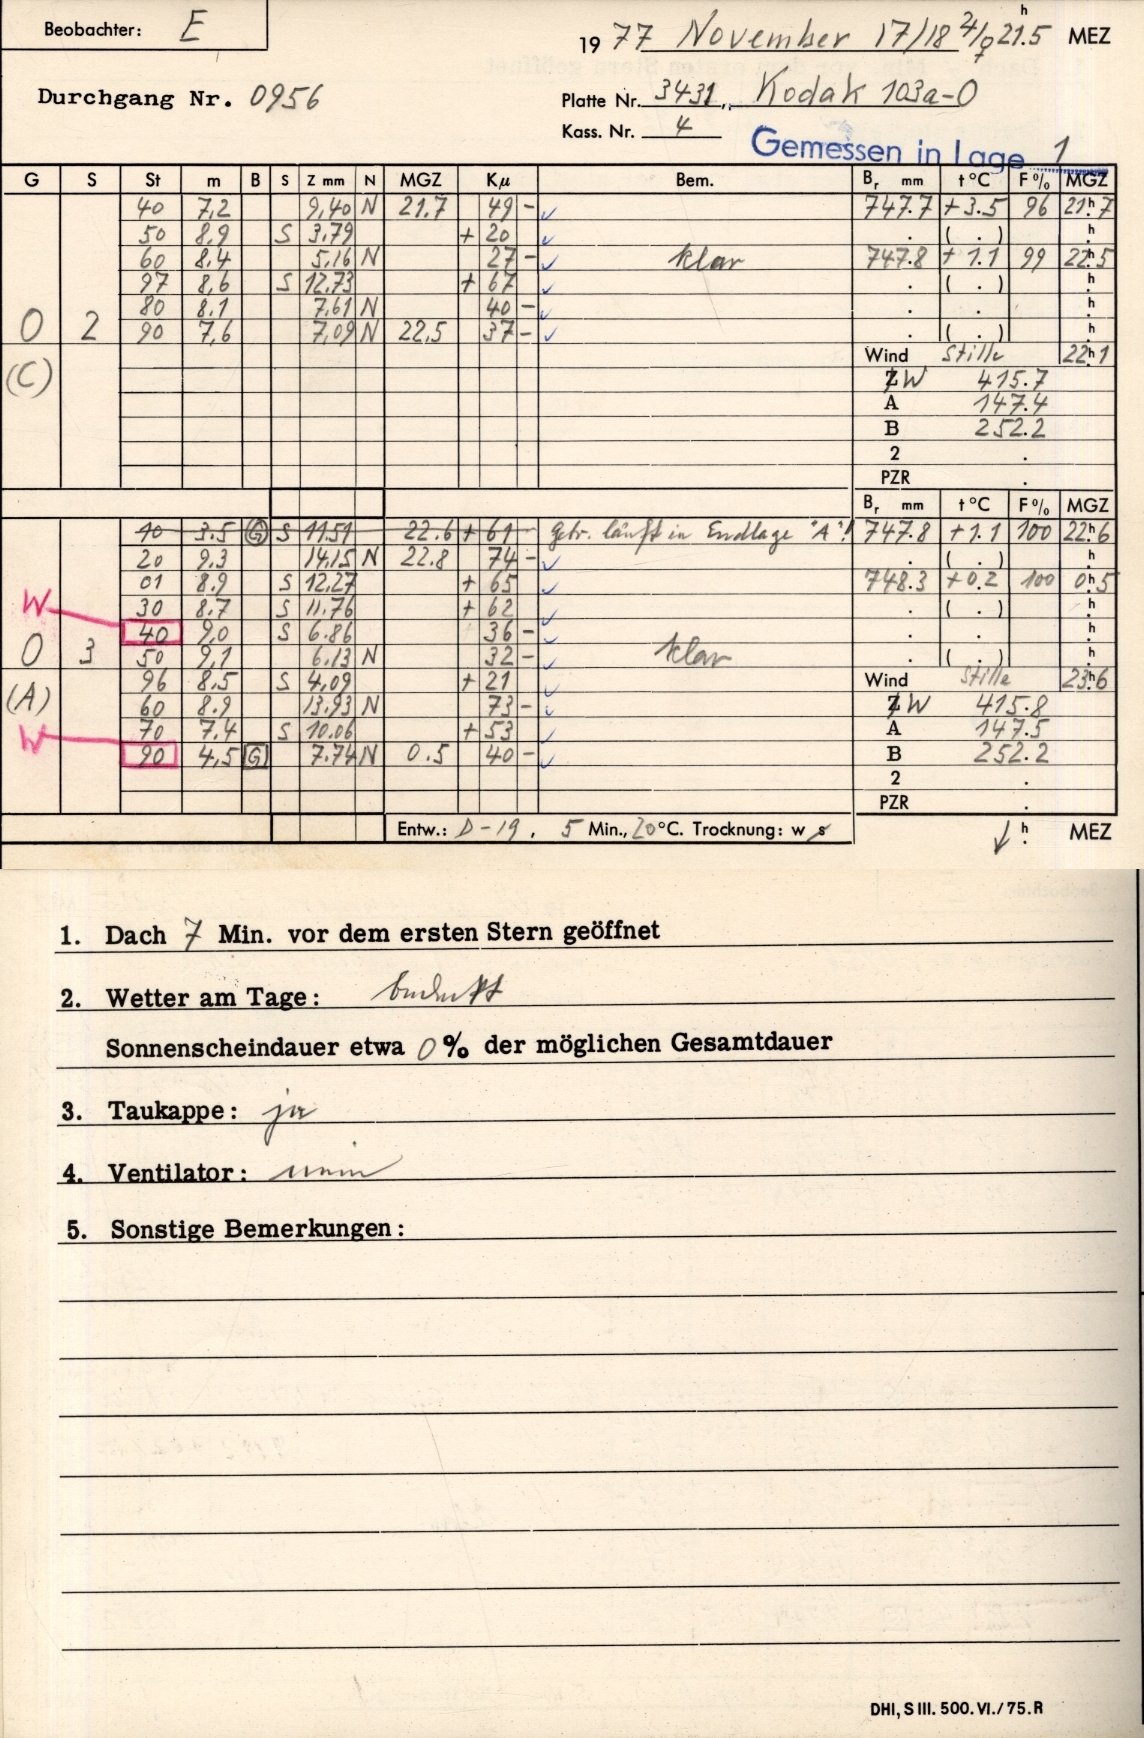 Beobachter: E
1977 November 17/18 21h.5 MEZ
Durchgang Nr. 0956
Platte Nr. 3431, Kodak 103a-O
Kass. Nr. 4
Gemessen in Lage 1
G S St m B S Z mm N MGZ Kμ Bem. Br mm t °C F % MGZ
40 7,2 9,40 N 21,7 49 - 747.7 +3.5 96 21h.7
50 8,9 S 3,79 + 20 . ( . ) h.
60 8,4 5,16 N 27 - klar 747.8 +1.1 99 22h.5
97 8,6 S 12,73 + 67 . ( . ) h.
80 8,1 7,61 N 40 - . . h.
0 2 90 7,6 7,09 N 22,5 37 - . ( . ) h.
Wind Stille 22h.1
(C) Z W 415.7
A 147.4
B 252.2
2 .
PZR .
Br mm t °C F % MGZ
10 3.5 G S 11,51 22.6 + 61 Getr. läuft in Endlage "A"! 747.8 +1.1 100 22h.6
20 9,3 14,15 N 22.8 74 - . ( . ) h.
01 8,9 S 12,27 + 65 748.3 +0.2 100 0h.5
W 30 8,7 S 11,76 + 62 . ( . ) h.
40 9,0 S 6.86 36 - . . h.
0 3 50 9,1 6,13 N 32 - klar . ( . ) h.
96 8,5 S 4,09 + 21 Wind Stille 23h.6
(A) 60 8,9 13,93 N 73 - Z W 415.8
W 70 7.4 S 10,06 + 53 A 147.5
90 4,5 G 7.74 N 0.5 40 - B 252.2
2 .
PZR .
Entw.: D-19, 5 Min., 20 °C. Trocknung: w s h. MEZ
1. Dach 7 Min. vor dem ersten Stern geöffnet
2. Wetter am Tage: bedeckt
Sonnenscheindauer etwa 0 % der möglichen Gesamtdauer
3. Taukappe: ja
4. Ventilator: nein
5. Sonstige Bemerkungen:
DHI, S III. 500. VI./75. R